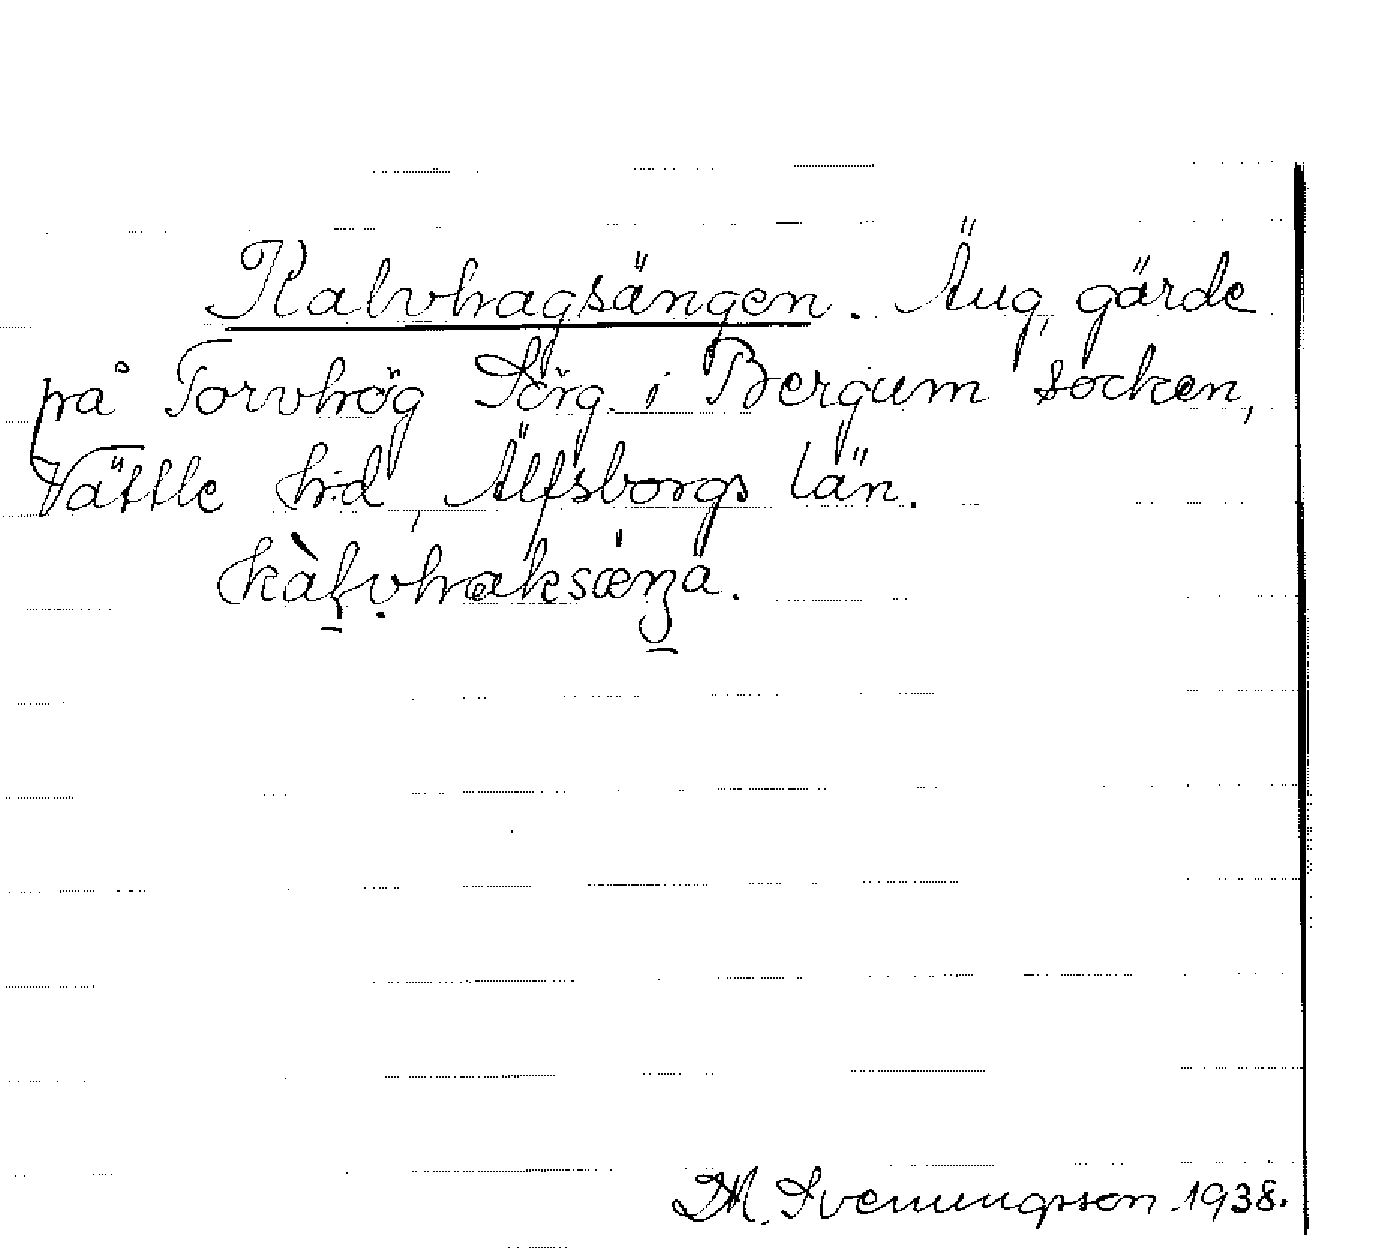 Kalvhagsängen. Äng, gärde
på Torvhög Sörg. i Bergum socken,
Vättle hd, Älfsborgs län.
kàl̠v̩haksæ̍ŋ̠a.
M. Svenungsson 1938.